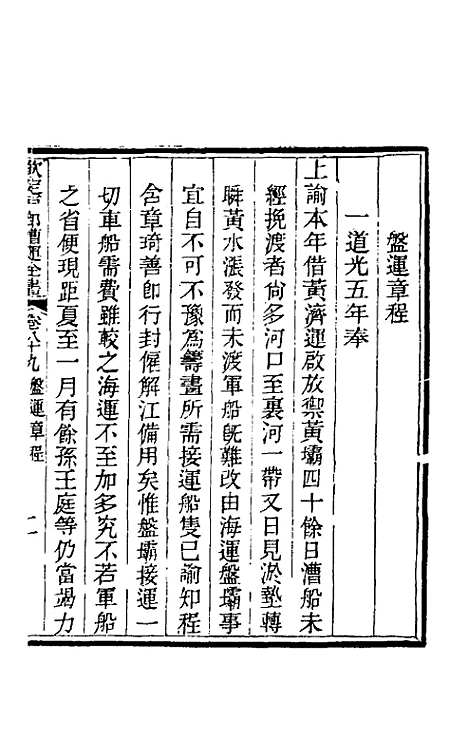 盤運章程
一道光五年奉
上諭本年借黃濟運啟放禦黃壩四十餘日漕船未
經挽渡者尙多河口至裏河一帶又日見淤墊轉
瞬黃水漲發而未渡軍船旣難改由海運盤壩事
宜自不可不豫爲籌畫所需接運船隻已諭知程
含章琦善卽行封僱解江備用矣惟盤壩接運一
切車船需費雖較之海運不至加多究不若軍船
之省便現距夏至一月有餘孫王庭等仍當竭力
欽定戶部漕運全書 卷八十九 盤運章程